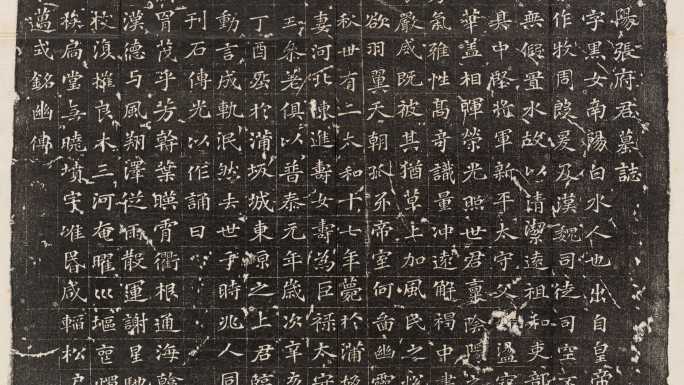 陽張府君墓誌
字黑女南陽白水人也出自皇帝
作牧周殷爰及漢魏司徒司空
無假置水故以清潔遠祖和吏部
具中堅將軍新平太守父盪寇
華蓋相暉榮光照世君稟陰陽
氣雅性高奇識量沖遠解褐中書
嚴威既被其猶草上加風民之悅
欲羽翼天朝抓牙帝室何啚幽靈
秋卅有二太和十七年薨於蒲坂
妻河北陳進壽女壽為巨祿太守
玉參差俱以普泰元年歲次辛亥
丁酉葬於蒲坂城東原之上君臨
動言成軌泯然去世于時兆人同
刊石傳光以作誦曰
胄茂乎芳幹葉暎霄衢根通海翰
漢德与風翔澤從雨散運謝星馳
枝復摧良木三河奄曜巛堙亘燭
族扃堂无曉墳宇唯昏咸輀松戶
邁式銘幽傳